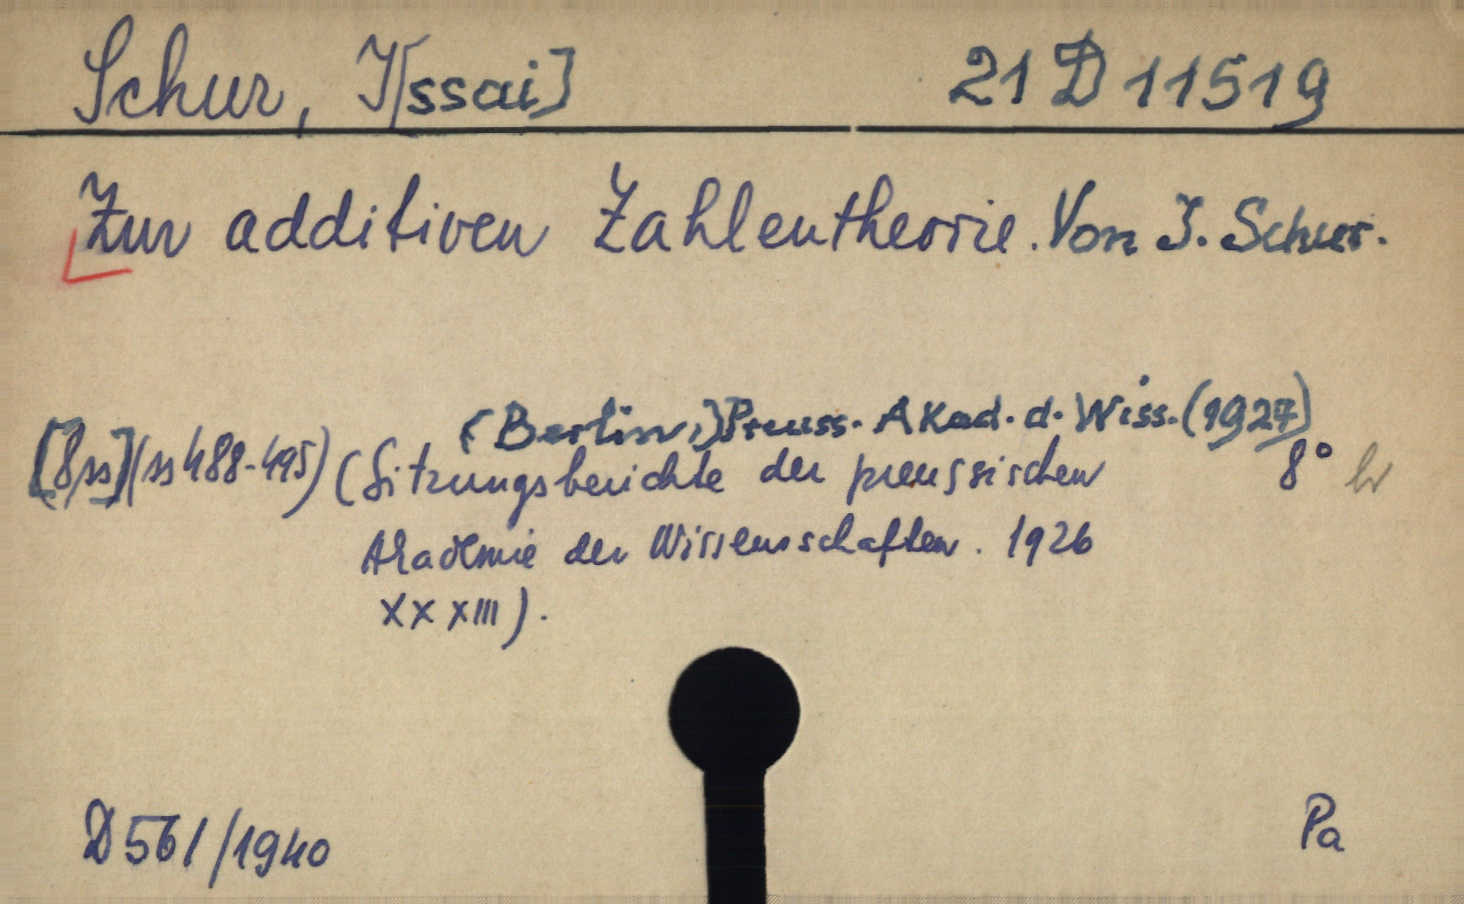 Schur, I[ssai] 21 D 11519
Zur additiven Zahlentheorie. Von I. Schur.
(Berlin,) Preuss. Akad. d. Wiss. (1927)
[8 ss] (ss 488-495) (Sitzungsberichte der preussischen 8°
Akademie der Wissenschaften. 1926
XXXIII).
D 561/1940 Pa